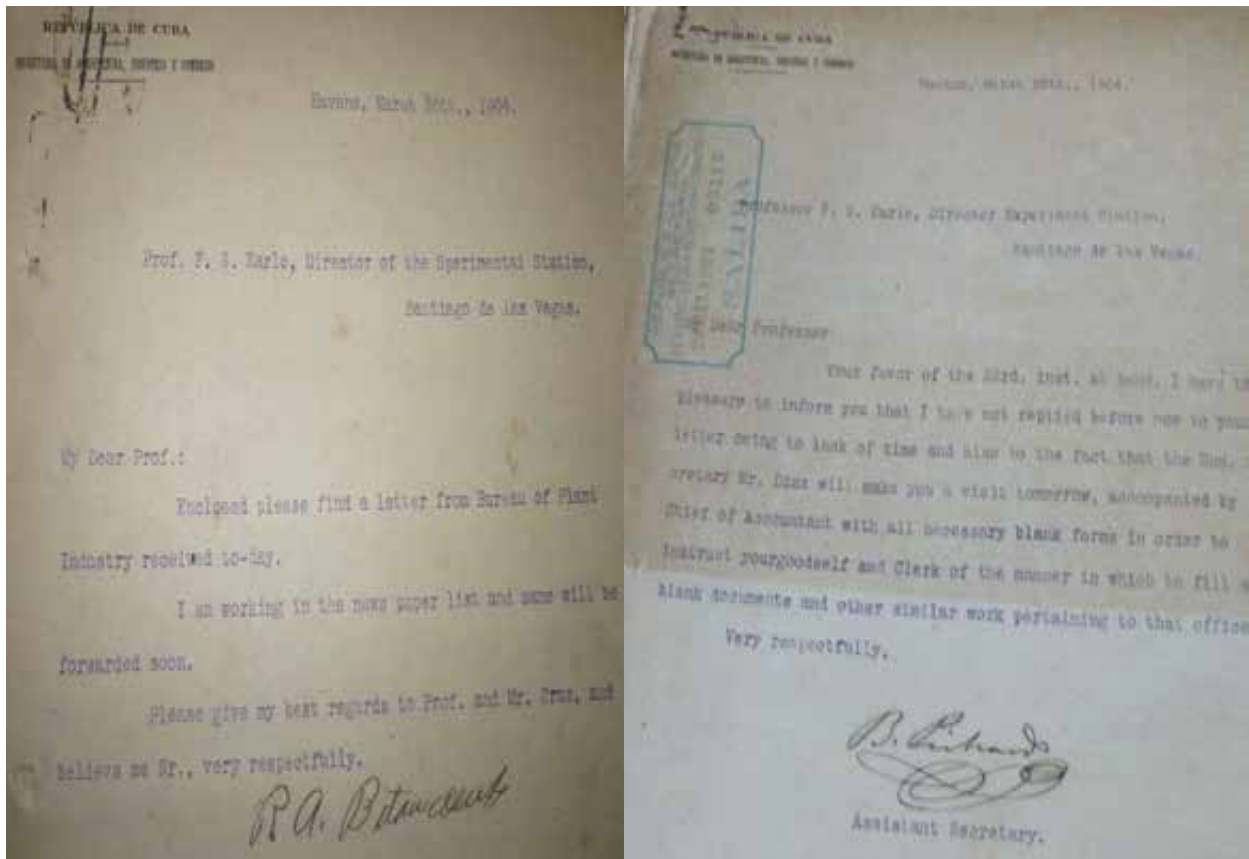 REPÚBLICA DE CUBA
SECRETARÍA DE AGRICULTURA, INDUSTRIA Y COMERCIO
Havana, March 1904.
Prof. F. S. Earle, Director of the Sperimental Station,
Santiago de las Vegas.
My Dear Prof.:
Enclosed please find a letter from Bureau of Plant
Industry received to-day.
I am working in the news paper list and same will be
forwarded soon.
Please give my best regards to Prof. and Mr. Cruz, and
believe me Sr., very respectfully.
R. A. Betancourt
REPÚBLICA DE CUBA
Havana, March 1904.
SALIDA
Professor F. S. Earle, Director Experiment Station,
Santiago de las Vegas.
Dear Professor
Your favor of the 23rd, inst. at hand. I have the
pleasure to inform you that I have not replied before now to your
letter owing to lack of time and also to the fact that the Hon.
cretary Mr. Diaz will make you a visit tomorrow, accompanied by
Chief of Accountant with all necessary blank forms in order to
instruct yourgoodself and Clerk of the manner in which to fill
blank documents and other similar work pertaining to that office
Very respectfully,
B. Pichardo
Assistant Secretary.